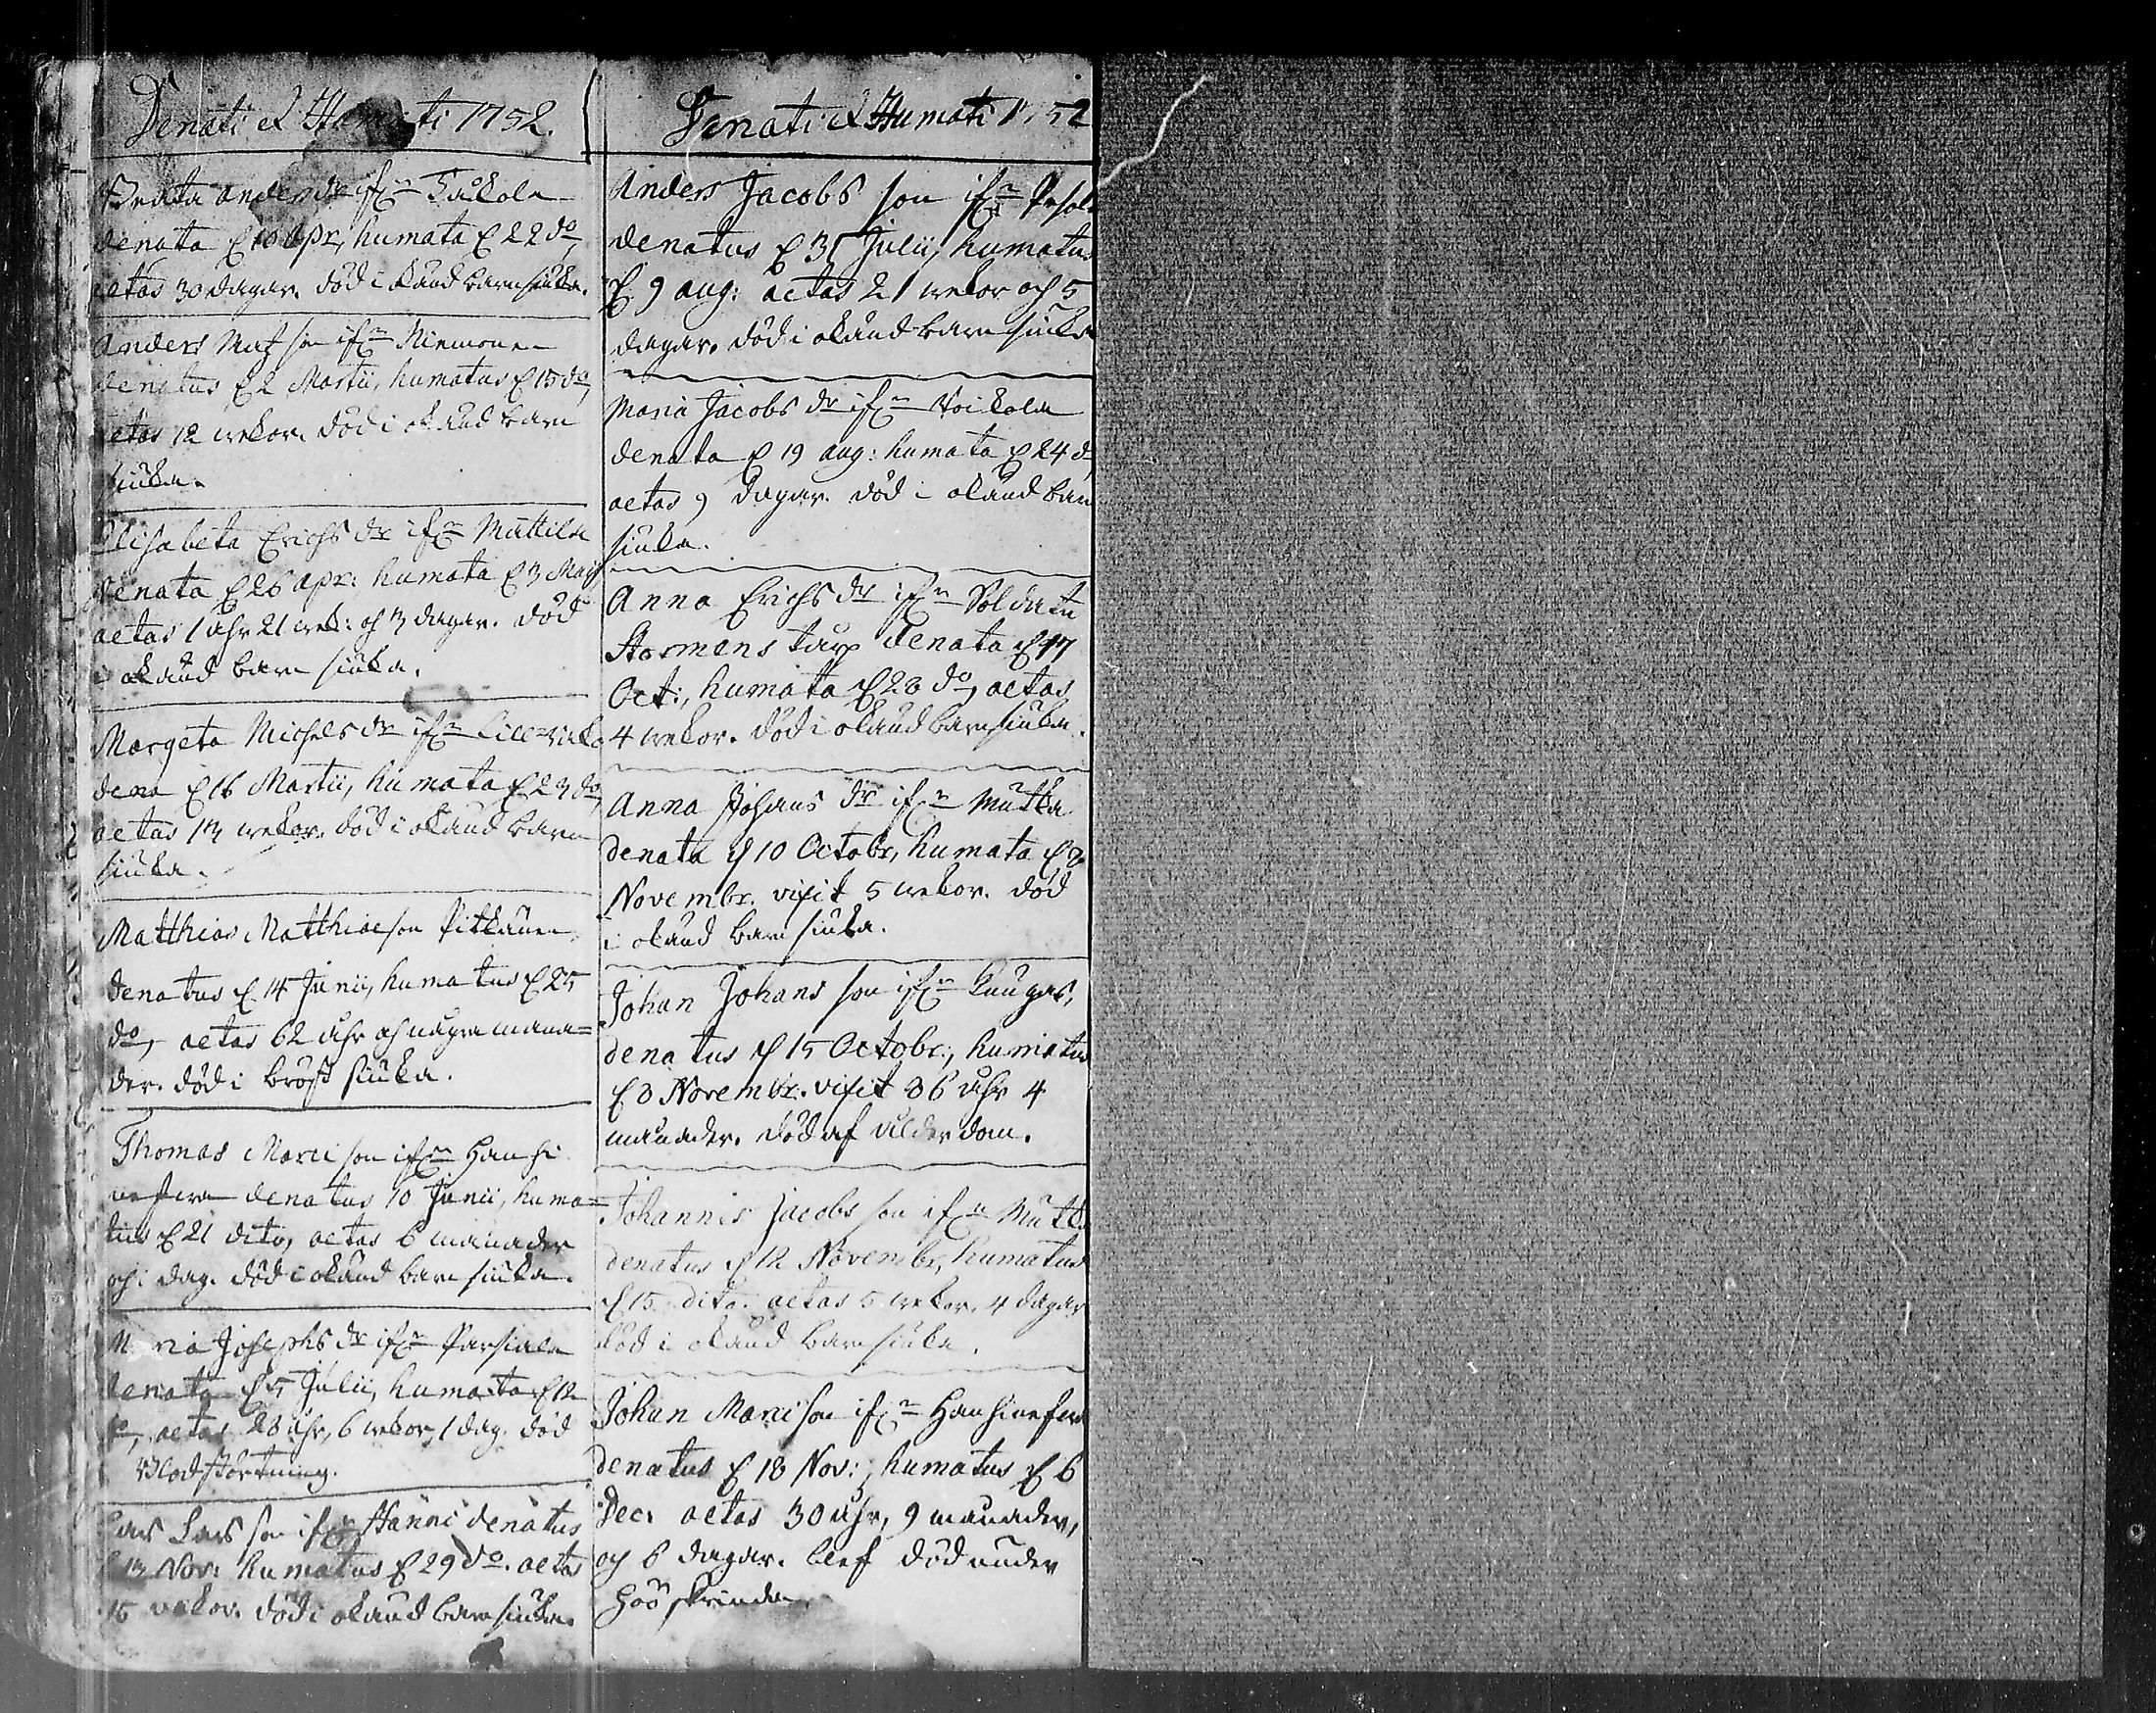 Denati et Humati 1752.
Beata anders dr ifrn
denata d 16 Apr, humata d 22 do,
aetas 30 dagar. död i okänd barnsiuka.
Anders Matz son ifrn Niemonen
denatus d 2 Martii, humatus d 15 do,
aetas 12 wekor. död i okänd barn
siuka.
Elisabeta Erichs dr ifrn Mattila
denata d 26 apr: humata d 3 Maij
aetas 1 åhr 21 wek: och 3 dagar. död
i okänd barn siuka.
Margeta Michels dr ifrn
dena d 16 Martii, humata d 23 do,
aetas 13 wekor. död i okänd barn
siuka.
Matthias Matthiae son Pitkänen
denatus d 14 Junii, humatus d 25
do, aetas 62 åhr och några måna=
der. död i bröst siuka.
Thomas Marci son ifrn Hanhi
denatus 10 Junii, huma=
tus d 21 dito, aetas 6 månader
och 1 dag. död i okänd barn siuka.
Maria Josephs dr ifrn Parsiala
denata d 5 Julii, humata d 12
do, aetas 28 åhr, 6 wekor, 1 dag. död
Blodstörtning.
Lars Lars son ifrn Hänni denatus
d 13 Nov: humatus d 29 do. aetas
15 wekor. död i okänd barnsiuka.
Denati et Humati 1752
Anders Jacobs son ifrn
denatus d 31 Julii, humatus
d 9 aug: aetas 21 wekor och 5
dagar. död i okänd barn siuka
Maria Jacobs dr ifrn Voikala
denata d 19 aug: humata d 24 d
aetas 9 dagar. död i okänd barn
siuka.
Anna Erichs dr ifrn Soldate
Stormens torp denata d 17
Oct:, humata d 28 do, aetas
4 wekor. död i okänd barnsiuka.
Anna Johans dr ifrn Mutka
denata d 10 Octobr, humata d 2
Novembr. vixit 5 wekor. död
i okänd barn siuka.
Johan Johans son ifrn Kaugas,
denatus d 15 Octobr:, humatus
d 3 Novembr. vixit 86 åhr 4
månader. död af ålderdom.
Johannis Jacobs son ifrn Mutk
denatus d 12 Novembr, humatus
d 15 dito. aetas 5 wekor. 4 dagar
död i okänd barn siuka.
Johan Marci son ifrn
denatus d 18 Nov:, humatus d 6
Dec: aetas 30 åhr, 9 månader,
och 6 dagar. blef död under
höö skrinda.